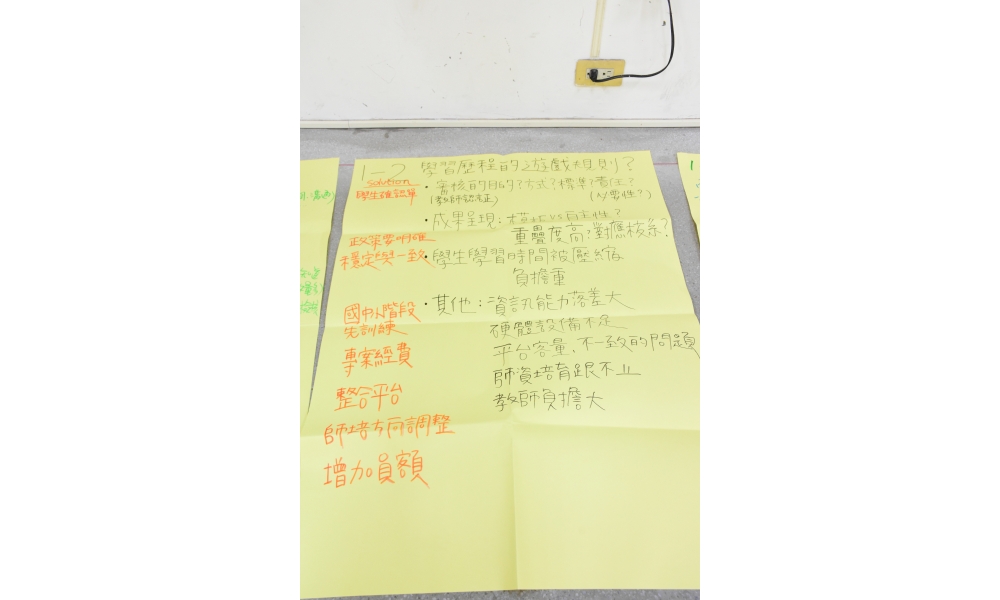 1-2 學習歷程的遊戲規則?
solution
學生確認單
・審核的目的?方式?標準?責任?
(教師認証) (必要性?)
・成果呈現:模式vs自主性?
重疊度高?對應核系?
政策要明確
穩定與一致
・學生學習時間被壓縮
負擔重
・其他:資訊能力落差大
國中小階段
先訓練
硬體設備不足
平台容量、不一致的問題
專案經費
師資培育跟不上
整合平台
教師負擔大
師培方向調整
增加員額